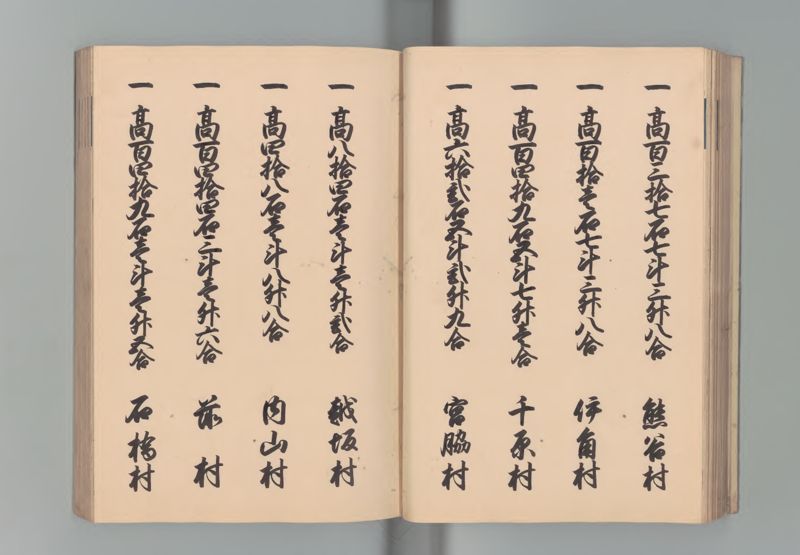 一 高百三拾七石七斗三升八合 熊谷村
一 高百拾壱石七斗三升八合 伊角村
一 高百四拾九石五斗七升壱合 千原村
一 高六拾弐石五斗弐升九合 宮脇村
一 高八拾四石壱斗壱升弐合 越坂村
一 高四拾八石壱斗八升八合 内山村
一 高百四拾四石三斗壱升六合 前村
一 高百四拾九石壱斗壱升五合 石橋村